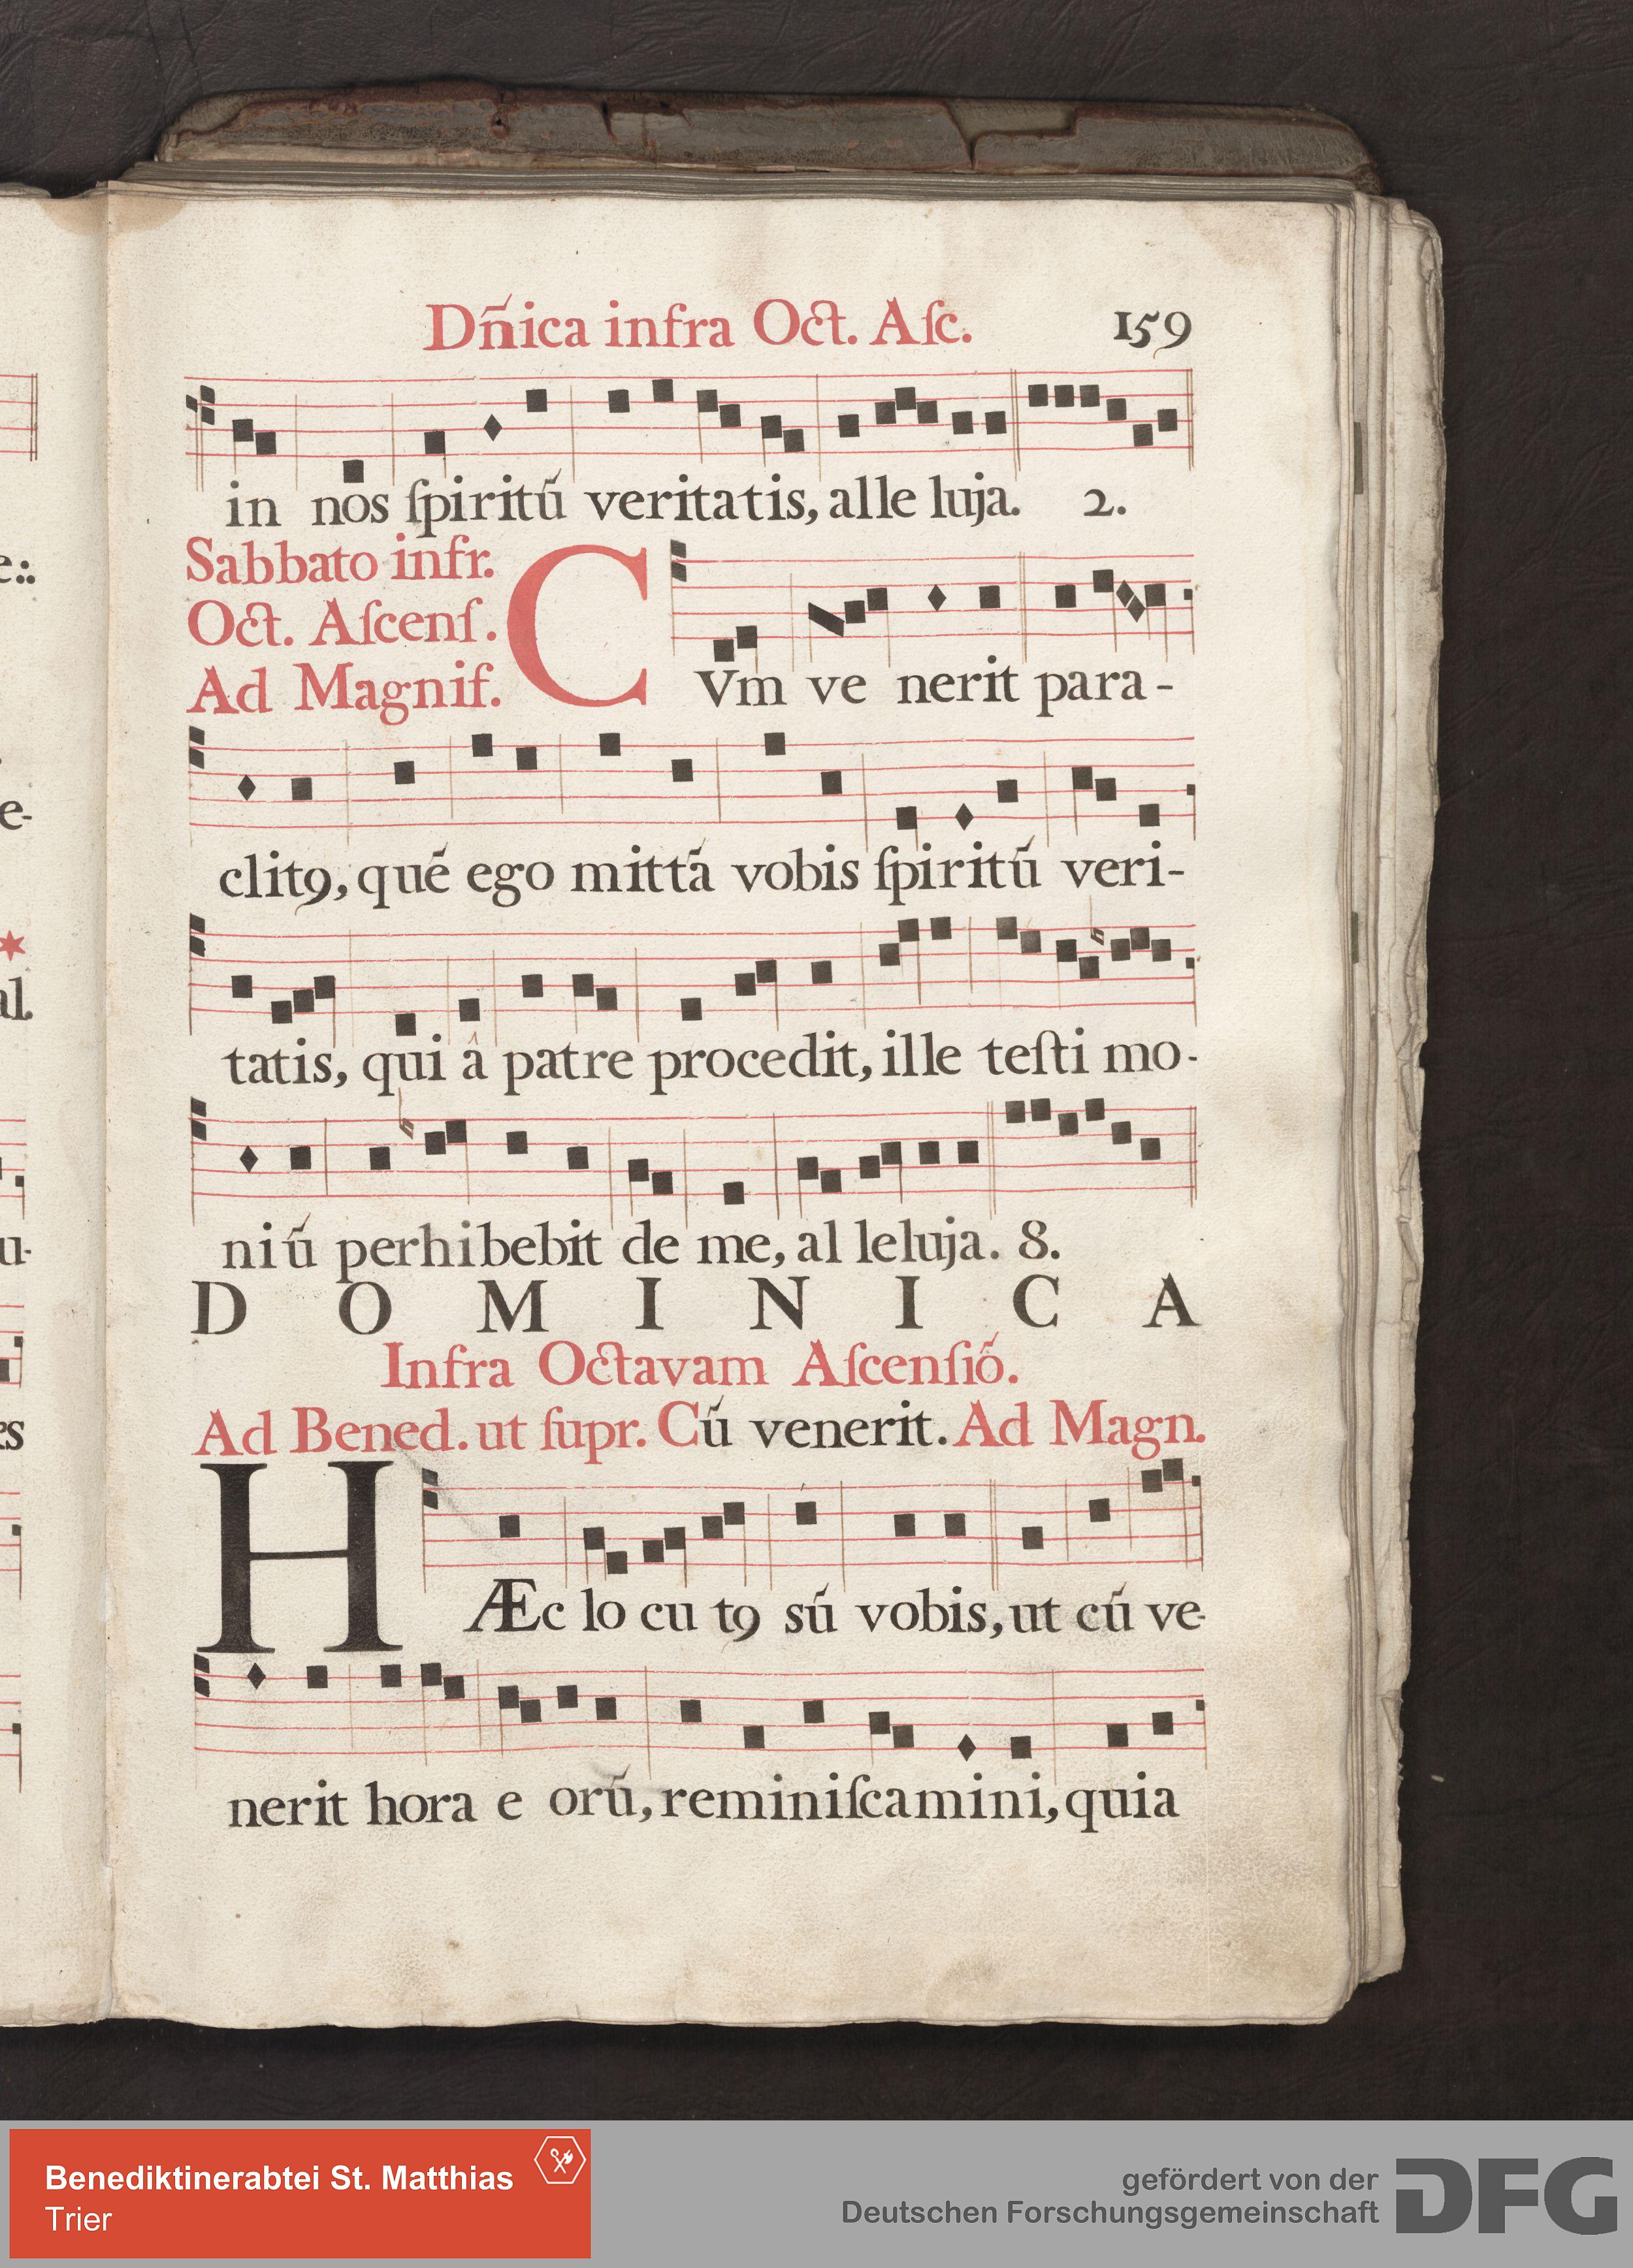 Dñica infra Oct. Aſc. 159
in nos ſpiritũ veritatis, alle luja. 2.
Sabbato infr.
Oct. Aſcenſ.
Ad Magnif.
CVm ve nerit para-
clitꝯ, quẽ ego mittã vobis ſpiritũ veri-
tatis, qui â patre procedit, ille teſti mo-
niũ perhibebit de me, al leluja. 8.
DOMINICA
Infra Octavam Aſcenſiõ.
Ad Bened. ut ſupr. Cũ venerit. Ad Magn.
HÆc lo cu tꝯ sũ vobis, ut cũ ve-
nerit hora e orũ, reminiſcamini, quia
Benediktinerabtei St. Matthias
Trier
gefördert von der
Deutschen Forschungsgemeinschaft
DFG